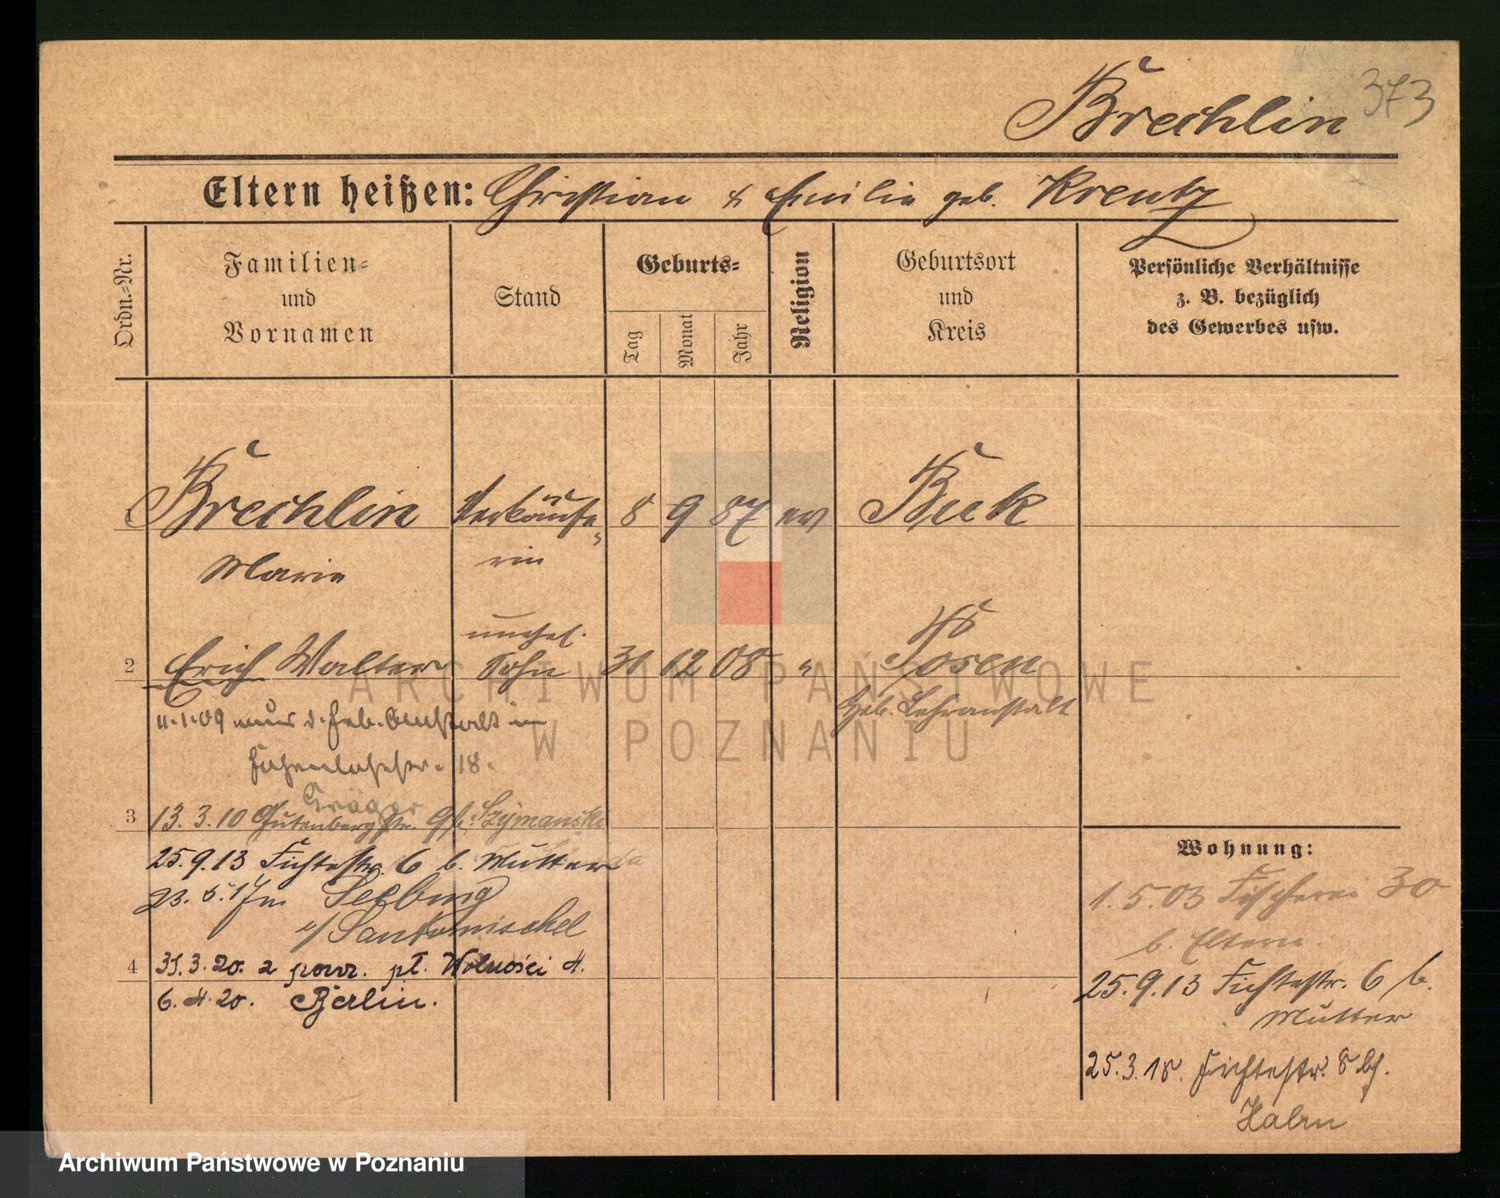 373
Brechlin
Eltern heißen: Christian & Emilie geb. Kreutz
Ordn.-Nr.
Familien-
und
Vornamen
Stand
Geburts-
Tag
Monat
Jahr
Religion
Geburtsort
und
Kreis
Persönliche Verhältnisse
z. B. bezüglich
des Gewerbes usw.
Brechlin Verkäufe- 8 9 87 ev Buk
Marie rin
unehel.
2 Erich Walter Sohn 31 12 08 " Posen
Heb. Lehranstalt
11.1.09 aus d. Heb. Anstalt in
18.
Krüger
3 13.3.10 Gutenbergstr. 9 b. Szymanski
25.9.13 Fichtestr. 6 b. Mutter
23.5.17 in Seeburg
b/ Santomischel
4 31.3.20. z powr. pl. Wolności 4.
6.4.20. Berlin.
Wohnung:
1.5.03 Fischerei 30
b. Eltern
25.9.13 Fichtestr. 6 b.
Mutter
25.3.18. Fichtestr. 8 bei
ARCHIWUM PAŃSTWOWE
W POZNANIU
Archiwum Państwowe w Poznaniu